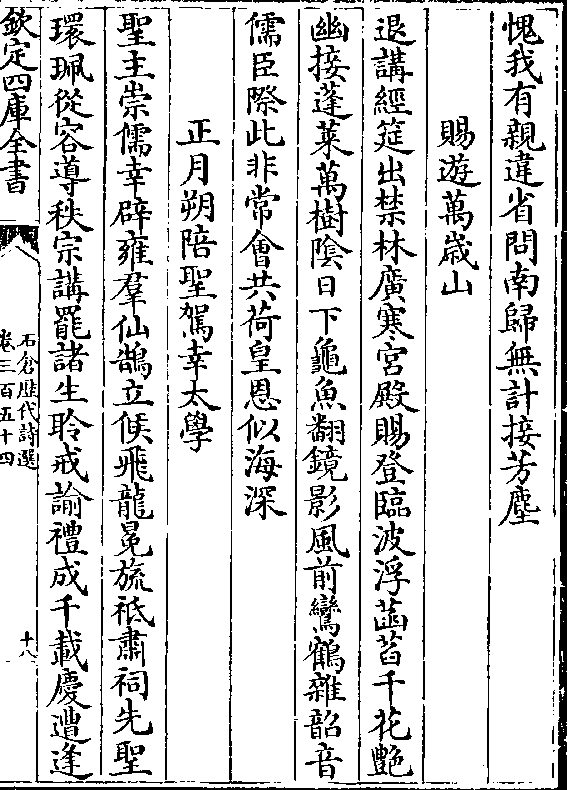 愧我有親違省問南歸無計接芳塵
賜遊萬歲山
退講經筵出禁林廣寒宮殿賜登臨波浮菡萏千花艷
幽接蓬萊萬樹陰日下龜魚翻鏡影風前鸞鶴雜韶音
儒臣際此非常會共荷皇恩似海深
正月朔陪聖駕幸太學
聖主崇儒幸辟雍羣仙鵠立候飛龍冕旒祗肅祠先聖
環珮從容導秩宗講罷諸生聆戒諭禮成千載慶遭逢
欽定四庫全書
石倉歷代詩選
卷三百五十四
十八